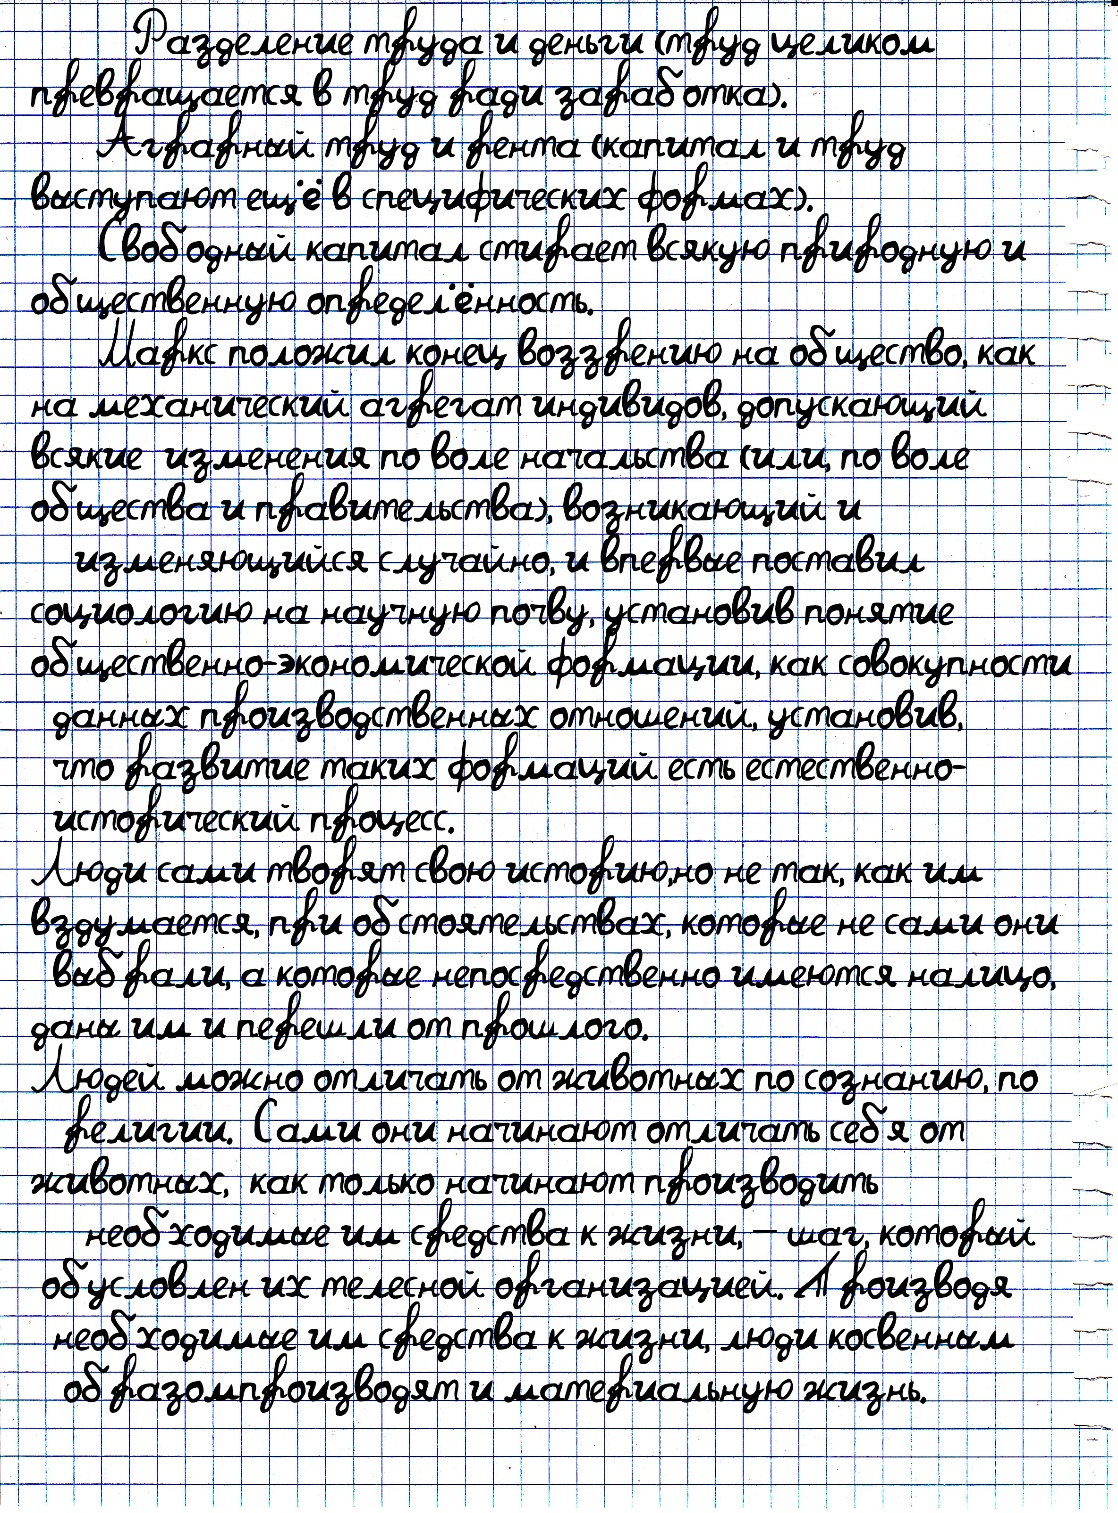 Разделение труда и деньги (труд целиком
превращается в труд ради заработка).
Аграрный труд и рента (капитал и труд
выступают ещё в специфических формах).
Свободный капитал стирает всякую природную и
общественную определённость.
Маркс положил конец воззрению на общество, как
на механический агрегат индивидов, допускающий
всякие изменения по воле начальства (или, по воле
общества и правительства), возникающий и
изменяющийся случайно, и впервые поставил
социологию на научную почву, установив понятие
общественно-экономической формации, как совокупности
данных производственных отношений, установив,
что развитие таких формаций есть естественно-
исторический процесс.
Люди сами творят свою историю,но не так, как им
вздумается, при обстоятельствах, которые не сами они
выбрали, а которые непосредственно имеются налицо,
даны им и перешли от прошлого.
Людей можно отличать от животных по сознанию, по
религии. Сами они начинают отличать себя от
животных, как только начинают производить
необходимые им средства к жизни, – шаг, который
обусловлен их телесной организацией. Производя
необходимые им средства к жизни, люди косвенным
образомпроизводят и материальную жизнь.